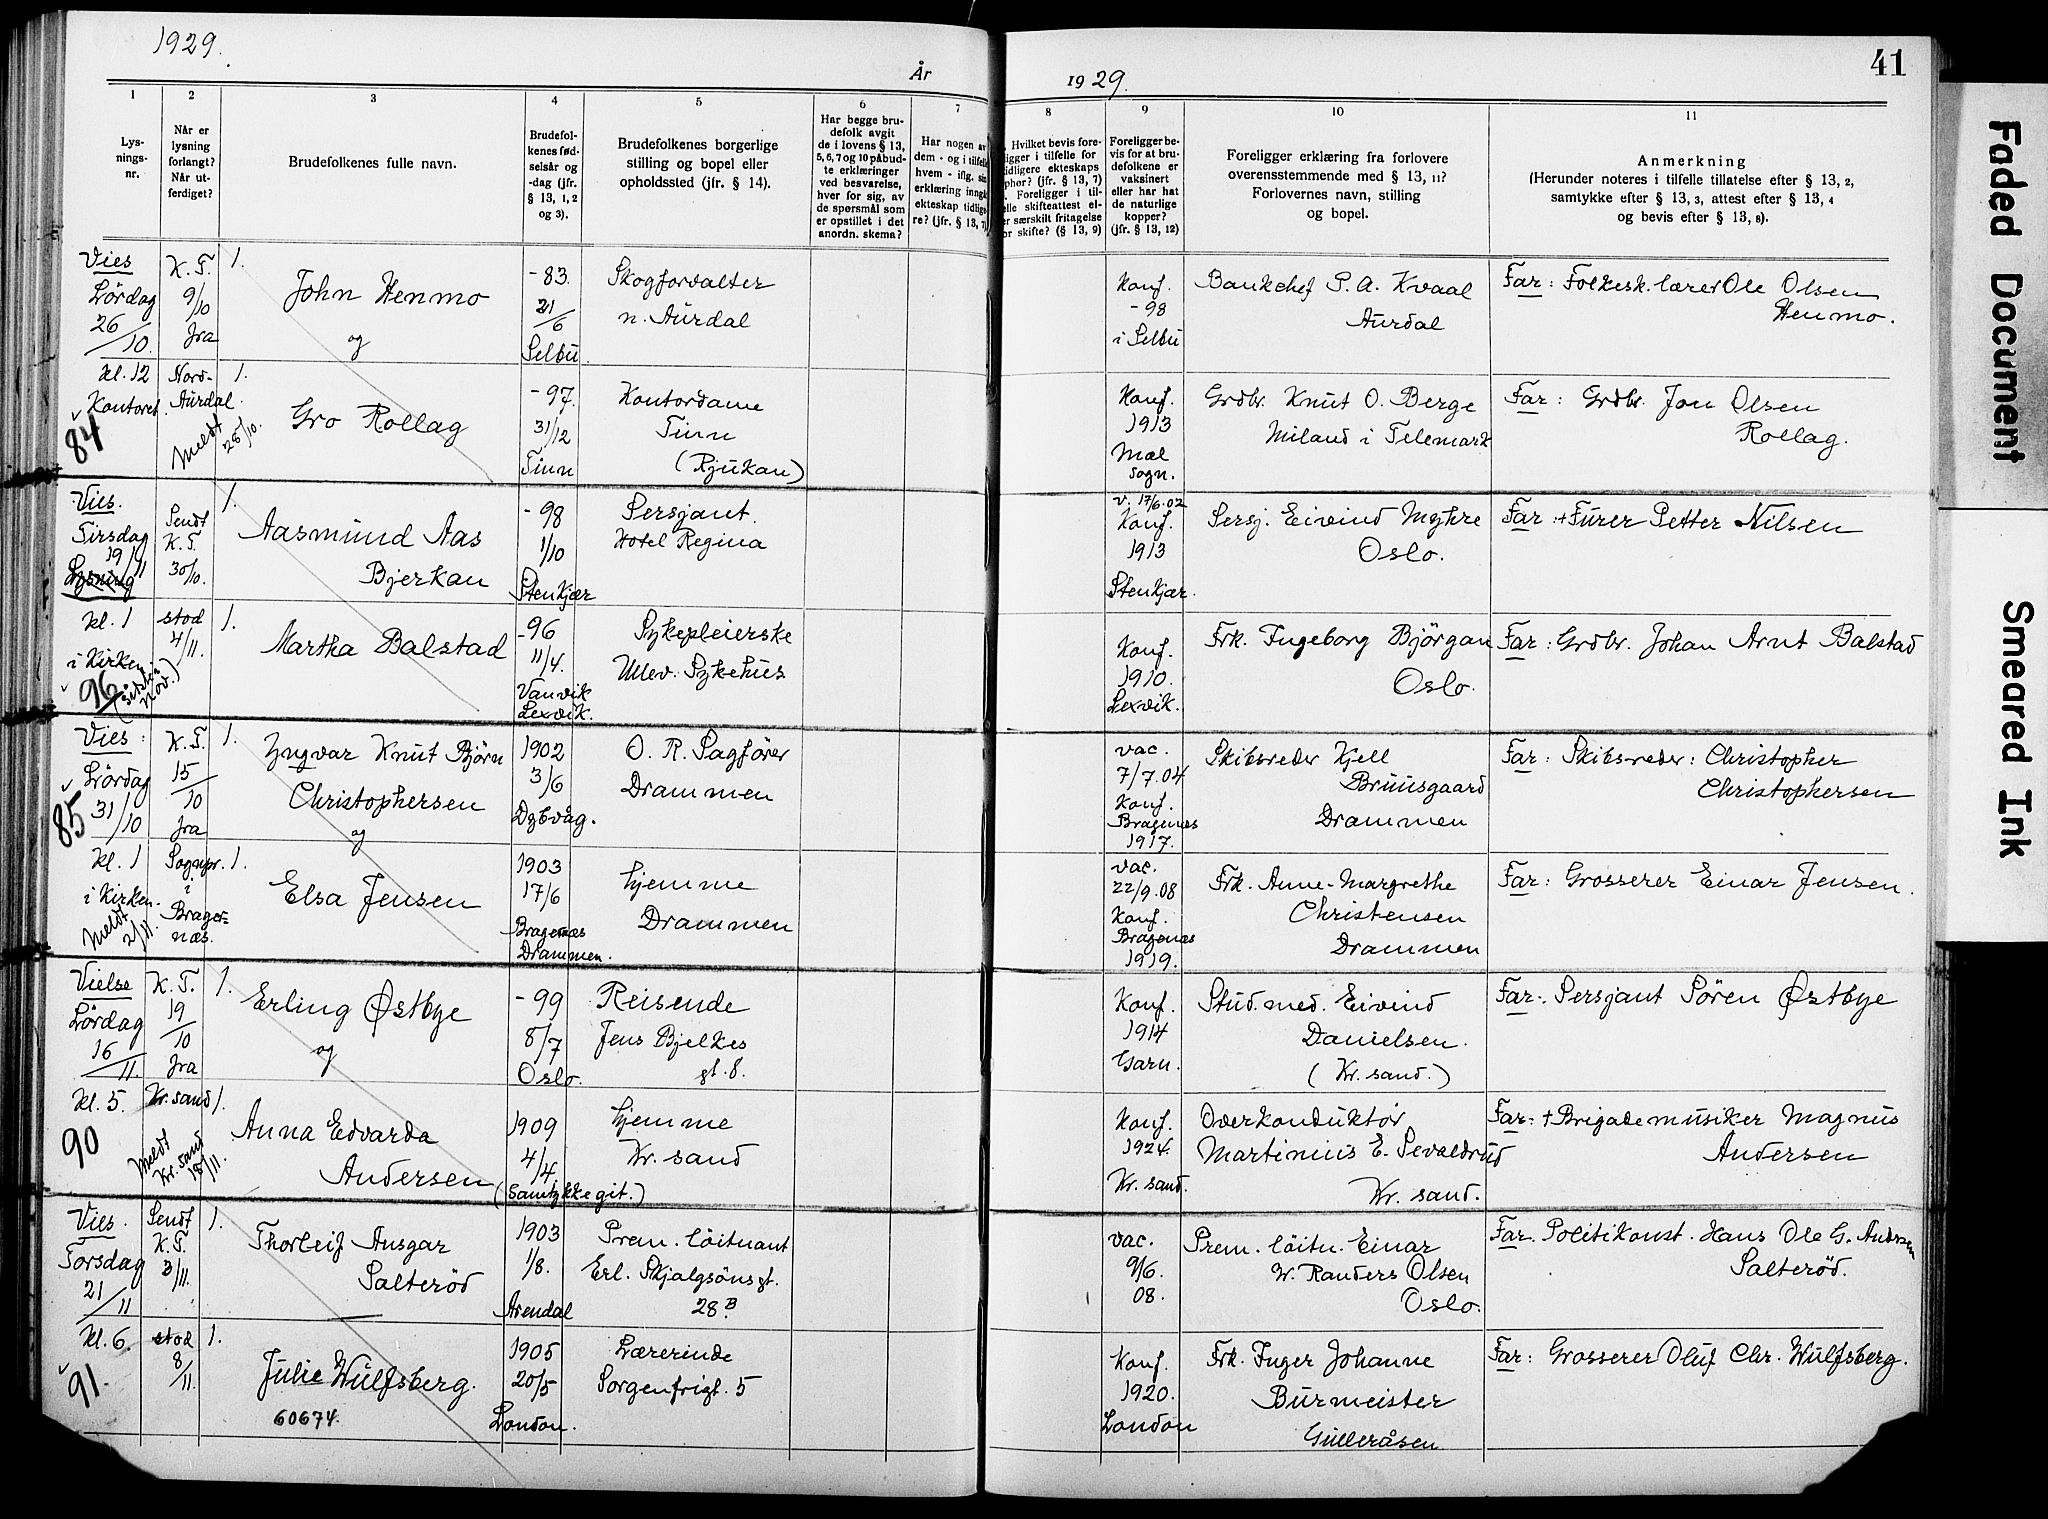 1929.
År
1929.
41
1
2
3
4
5
6
7
8
9
10
11
Lys-
nings-
nr.
Når er
lysning
forlangt?
Når ut-
ferdiget?
Brudefolkenes fulle navn.
Brudefol-
kenes fød-
selsår og
-dag (jfr.
§ 13, 1, 2
og 3).
Brudefolkenes borgerlige
stilling og bopel eller
opholdssted (jfr. § 14).
Har begge bru-
defolk avgit
de i lovens § 13,
5, 6, 7 og 10 påbud-
te erklæringer
ved besvarelse,
hver for sig, av
de spørsmål som
er opstillet i det
anordn. skema?
Har nogen av
dem - og i tilfelle
hvem - iflg. sin
erklæring inngå
ekteskap tidlige
re? (jfr. § 13, 7)
Hvilket bevis fore-
ligger i tilfelle for
tidligere ekteskaps
phør? (jfr. § 13, 7)
Foreligger i til-
elle skifteattest el-
er særskilt fritagelse
or skifte? (§ 13, 9)
Foreligger be-
vis for at bru-
defolkene er
vaksinert
eller har hat
de naturlige
kopper?
(jfr. § 13, 12)
Foreligger erklæring fra forlovere
overensstemmende med § 13, 11?
Forlovernes navn, stilling
og bopel.
Anmerkning
(Herunder noteres i tilfelle tillatelse efter § 13, 2,
samtykke efter § 13, 3, attest efter § 13, 4
og bevis efter § 13, 8).
Vies
Lördag
26/10.
K. T.
9/10
fra
1.
John Henmo
og
-83.
21/6
Selbu.
Skogforvalter
n. Aurdal
Konf.
-98
i Selbu
Bankchef P. A. Kvaal
Aurdal
Far: Folkesk. lærer Ole Olsen
Henmo.
kl. 12
Kontoret.
84
Nord-
Aurdal.
Meldt
28/10.
1.
Gro Rollag
-97.
31/12
Tinn
Kontordame
Tinn
(Rjukan)
Konf.
1913
Mæl
sogn.
Grdbr. Knut O. Berge
Miland i Telemark
Far: Grdbr. Jon Olsen
Rollag.
Vies.
Tirsdag
19/11
Lysning
Sendt
K. T.
30/10.
1.
Aasmund Aas
Bjerkan
-98
1/10
Stenkjær
Sersjant.
Hotel Regina
v. 17/6.02
Konf.
1913
Stenkjær.
Sersj. Eivind Myhre
Oslo.
Far: + Furer Petter Nilsen
kl. 1
i Kirken
96
stod
4/11.
1.
Martha Balstad
-96
11/4.
Vanvik
Lexvik.
Sykepleierske
Ullev. Sykehus
Konf.
1910.
Lexvik.
Frk. Ingeborg Björgan
Oslo.
Far: Grdbr. Johan Arnt Balstad
Vies:
Lördag
31/10
85
K. T.
15/10
fra
1.
Yngvar Knut Björn
Christophersen
og
1902
3/6
Dybvåg.
O. R. Sagförer
Drammen
vac.
7/7.04
Konf.
Bragenæs
1917.
Skibsreder Kjell
Bruusgaard
Drammen
Far: Skibsreder: Christopher
Christophersen
kl. 1
i Kirken.
Meldt
2/11.
Sognepr.
i
Brager-
næs.
1.
Elsa Jensen
1903
17/6
Bragenæs
Drammen.
hjemme
Drammen
vac.
22/9.08
Konf.
Bragenæs
1919.
Frk. Anne-Margrethe
Christensen
Drammen
Far: Grosserer Einar Jensen.
Vielse
Lördag
16/11.
K. T.
19/10
fra
1.
Erling Østbye
og
-99
8/7
Oslo.
Reisende
Jens Bjelkes
gt. 8.
Konf.
1914
Garn.
Stud. med. Eivind
Danielsen.
(Kr. sand.)
Far: Sersjant Sören Østbye
kl. 5.
90
Kr. sand
Meldt
Kr. sand
18/11.
1.
Anna Edvarda
Andersen
1909
4/4
(Samtykke git.)
hjemme
Kr. sand
Konf.
1924.
Kr. sand.
Overkonduktör
Martinius E. Sevaldrud
Kr. sand.
Far: + Brigademusiker Magnus
Andersen
Vies.
Torsdag
21/11
Sendt
K. T.
3/11.
1.
Thorleif Ansgar
Salteröd
1903
1/8.
Arendal
Prem. löitnant
Erl. Skjalgsöns gt.
28 B
vac.
9/6.
08.
Prem. löitn. Einar
W. Randers Olsen
Oslo.
Far. Politikonst. Hans Ole G. Andersen
Salteröd.
kl. 6.
91.
stod
8/11.
1.
Julie Wulfsberg.
60674.
1905
20/5
London.
Lærerinde
Sorgenfrigt. 5
Konf.
1920.
London
Frk. Inger Johanne
Burmeister
Gulleråsen
Far: Grosserer Oluf Chr. Wulfsberg.
Faded Document
Smeared Ink